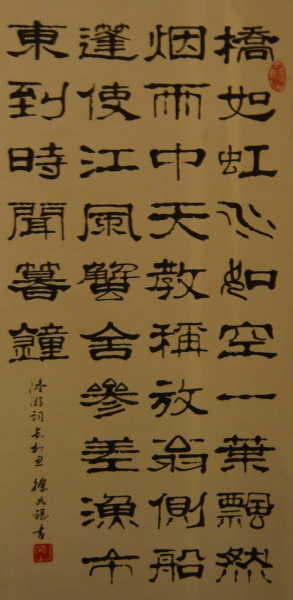 橋如虹水如空一葉飄然
烟雨中天教稱放翁側船
蓬使江風蟹舍參差漁市
東到時聞暮鐘
陸游詞長相思 徐 書